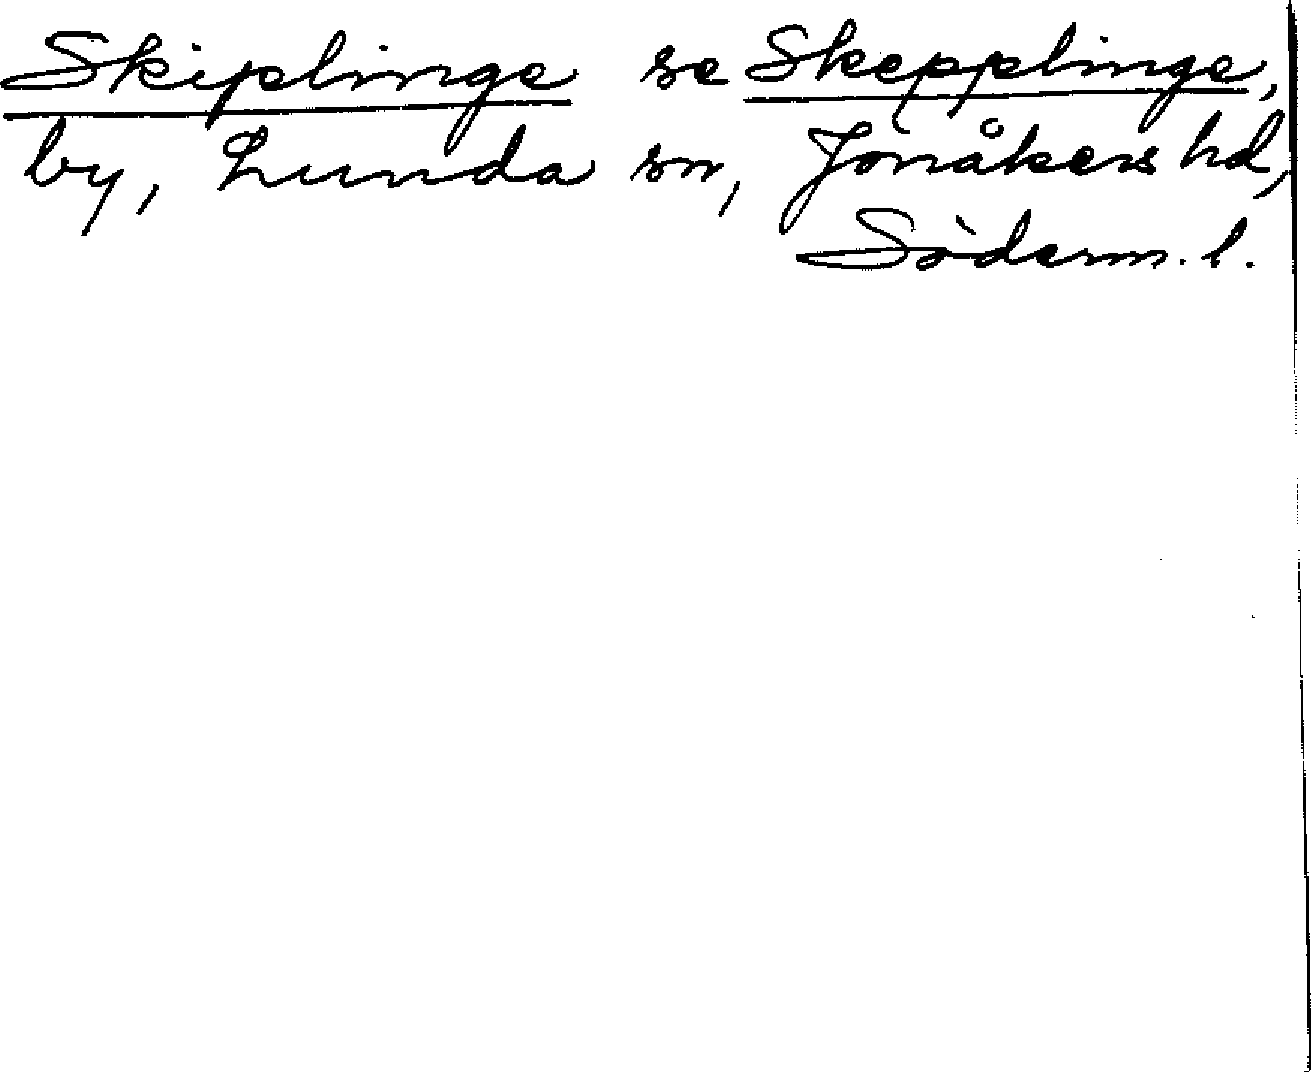 Skiplinge se Skepplinge,
by, Lunda sn, Jonåkers hd,
Söderm. l.